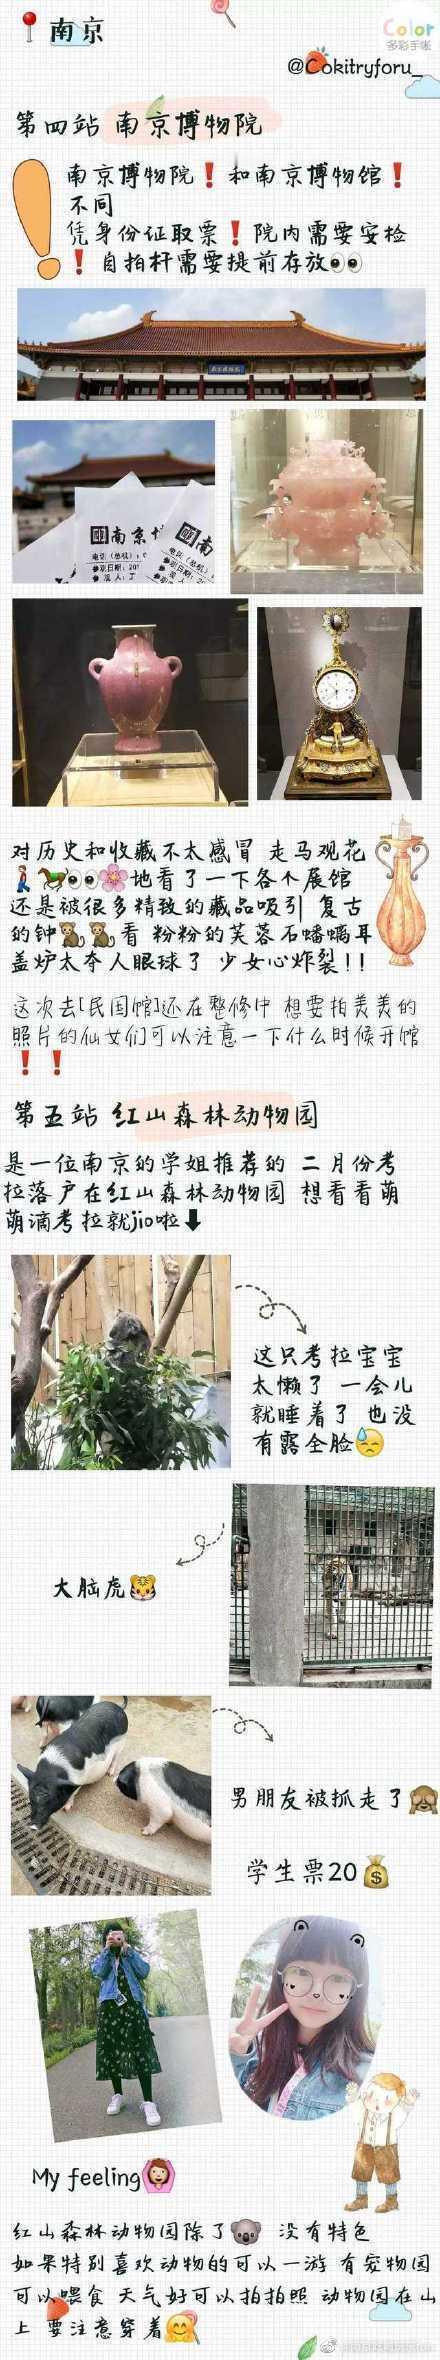 Color
多彩手帐
📍南京
@Cokitryforu_
第四站 南京博物院
南京博物院❗和南京博物馆❗
不同
凭身份证取票❗院内需要安检
❗自拍杆需要提前存放👀
南京博物院
南京博
电话(总机):0
参观日期:201
参观日期:
对历史和收藏不太感冒 走马观花
🚶🐎👀🌸地看了一下各个展馆
还是被很多精致的藏品吸引 复古
的钟🐒🐒看 粉粉的芙蓉石蟠螭耳
盖炉太夺人眼球了 少女心炸裂!!
这次去[民国馆]还在整修中 想要拍美美的
照片的仙女们可以注意一下什么时候开馆
❗❗
第五站 红山森林动物园
是一位南京的学姐推荐的 二月份考
拉落户在红山森林动物园 想看看萌
萌滴考拉就jio啦⬇
这只考拉宝宝
太懒了 一会儿
就睡着了 也没
有露全脸😓
大脑虎🐯
男朋友被抓走了🙈
学生票20💰
My feeling🙆
红山森林动物园除了🐨 没有特色
如果特别喜欢动物的可以一游 有宠物园
可以喂食 天气好可以拍拍照 动物园在山
上 要注意穿着🤗